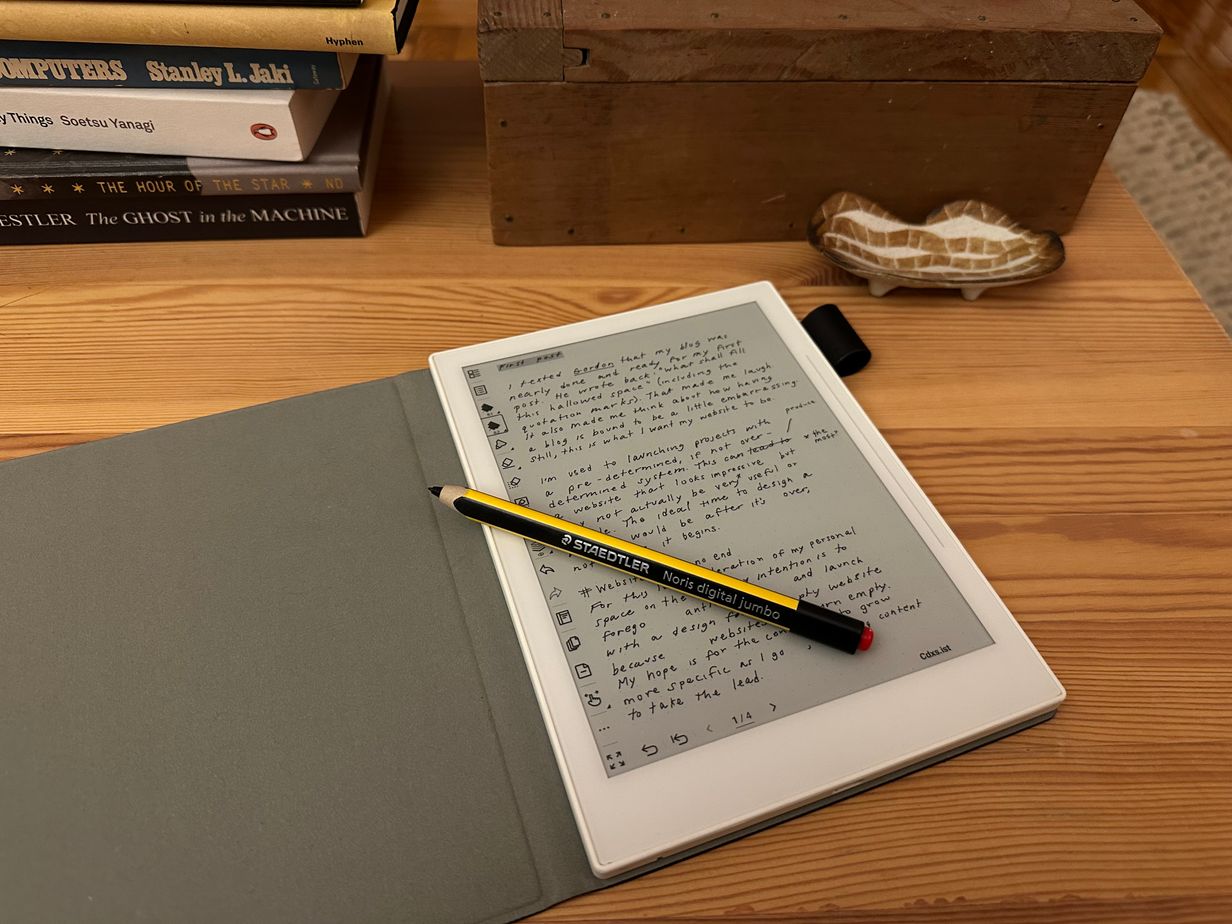 Hyphen
COMPUTERS Stanley L. Jaki
Things Soetsu Yanagi
THE HOUR OF THE STAR
ESTLER The GHOST in the MACHINE
First post
I texted Gordon that my blog was
nearly done and ready for my first
post. He wrote back "what shall fill
this hallowed space" (including the
quotation marks). That made me laugh
It also made me think about how having
a blog is bound to be a little embarrassing.
Still, this is what I want my website to be.
I'm used to launching projects with
produce
a pre-determined, if not over-
determined system. This can lead to
* the most?
a website that looks impressive but
not actually be very* useful or
The ideal time to design a
would be after it's over,
it begins.
no end
# Websi
For this eration of my personal
space on the intention is to
forego anti and launch
with a design pty website
because website rn empty.
My hope is for the con to grow
more specific as I go content
to take the lead.
Cdxs.ist
1/4
STAEDTLER Noris digital jumbo